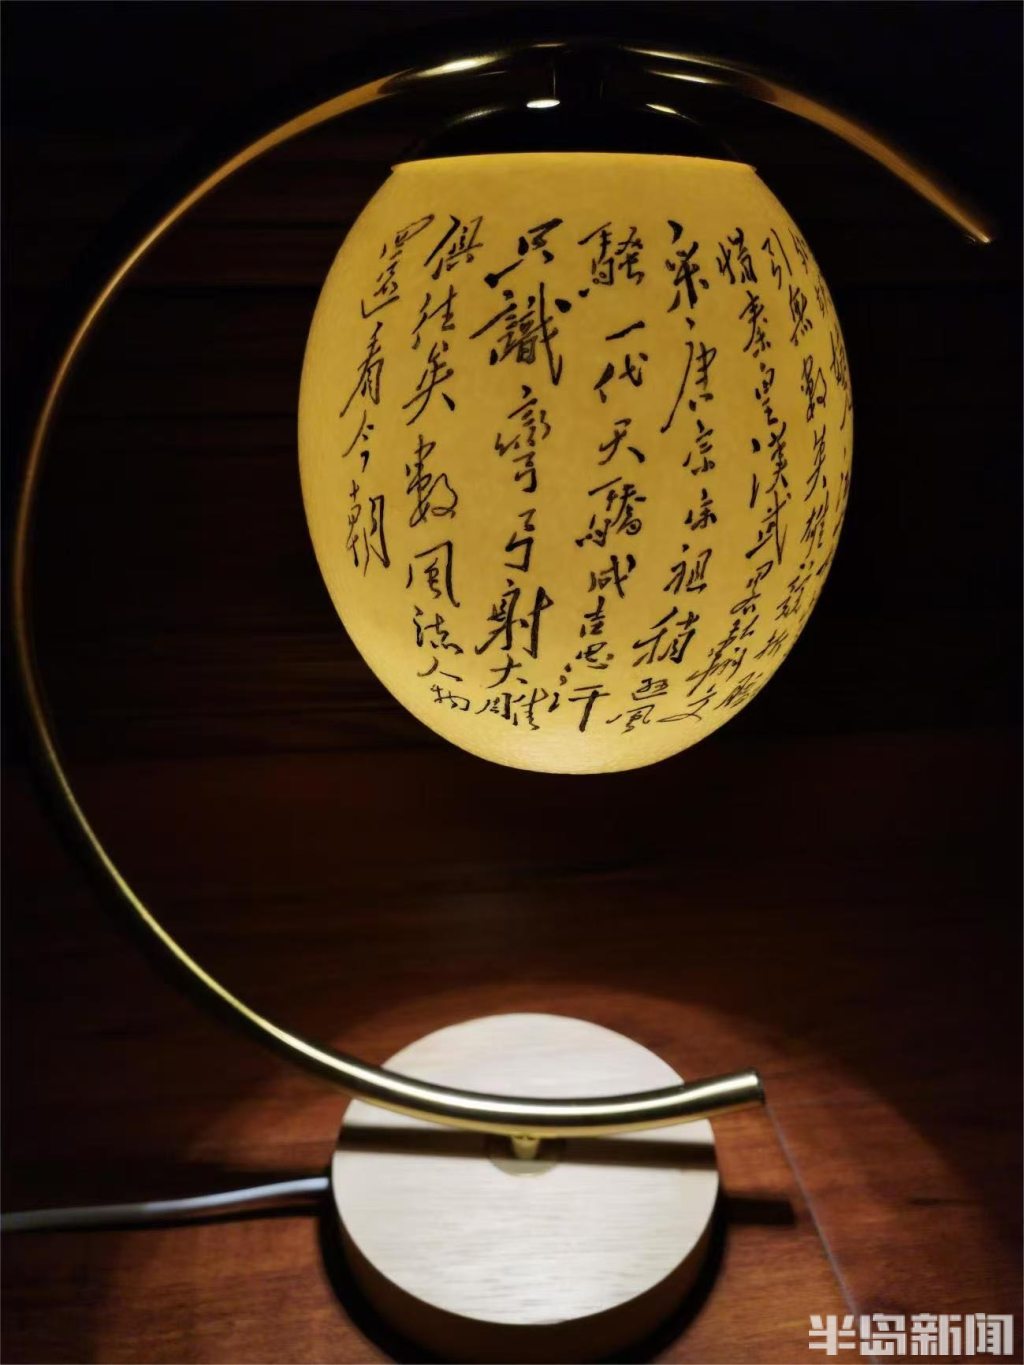 引無數英雄競折腰
惜秦皇漢武畧輸文
采唐宗宋祖稍遜風
騷一代天驕成吉思汗
只識彎弓射大雕
俱往矣數風流人物
還看今朝
半岛新闻